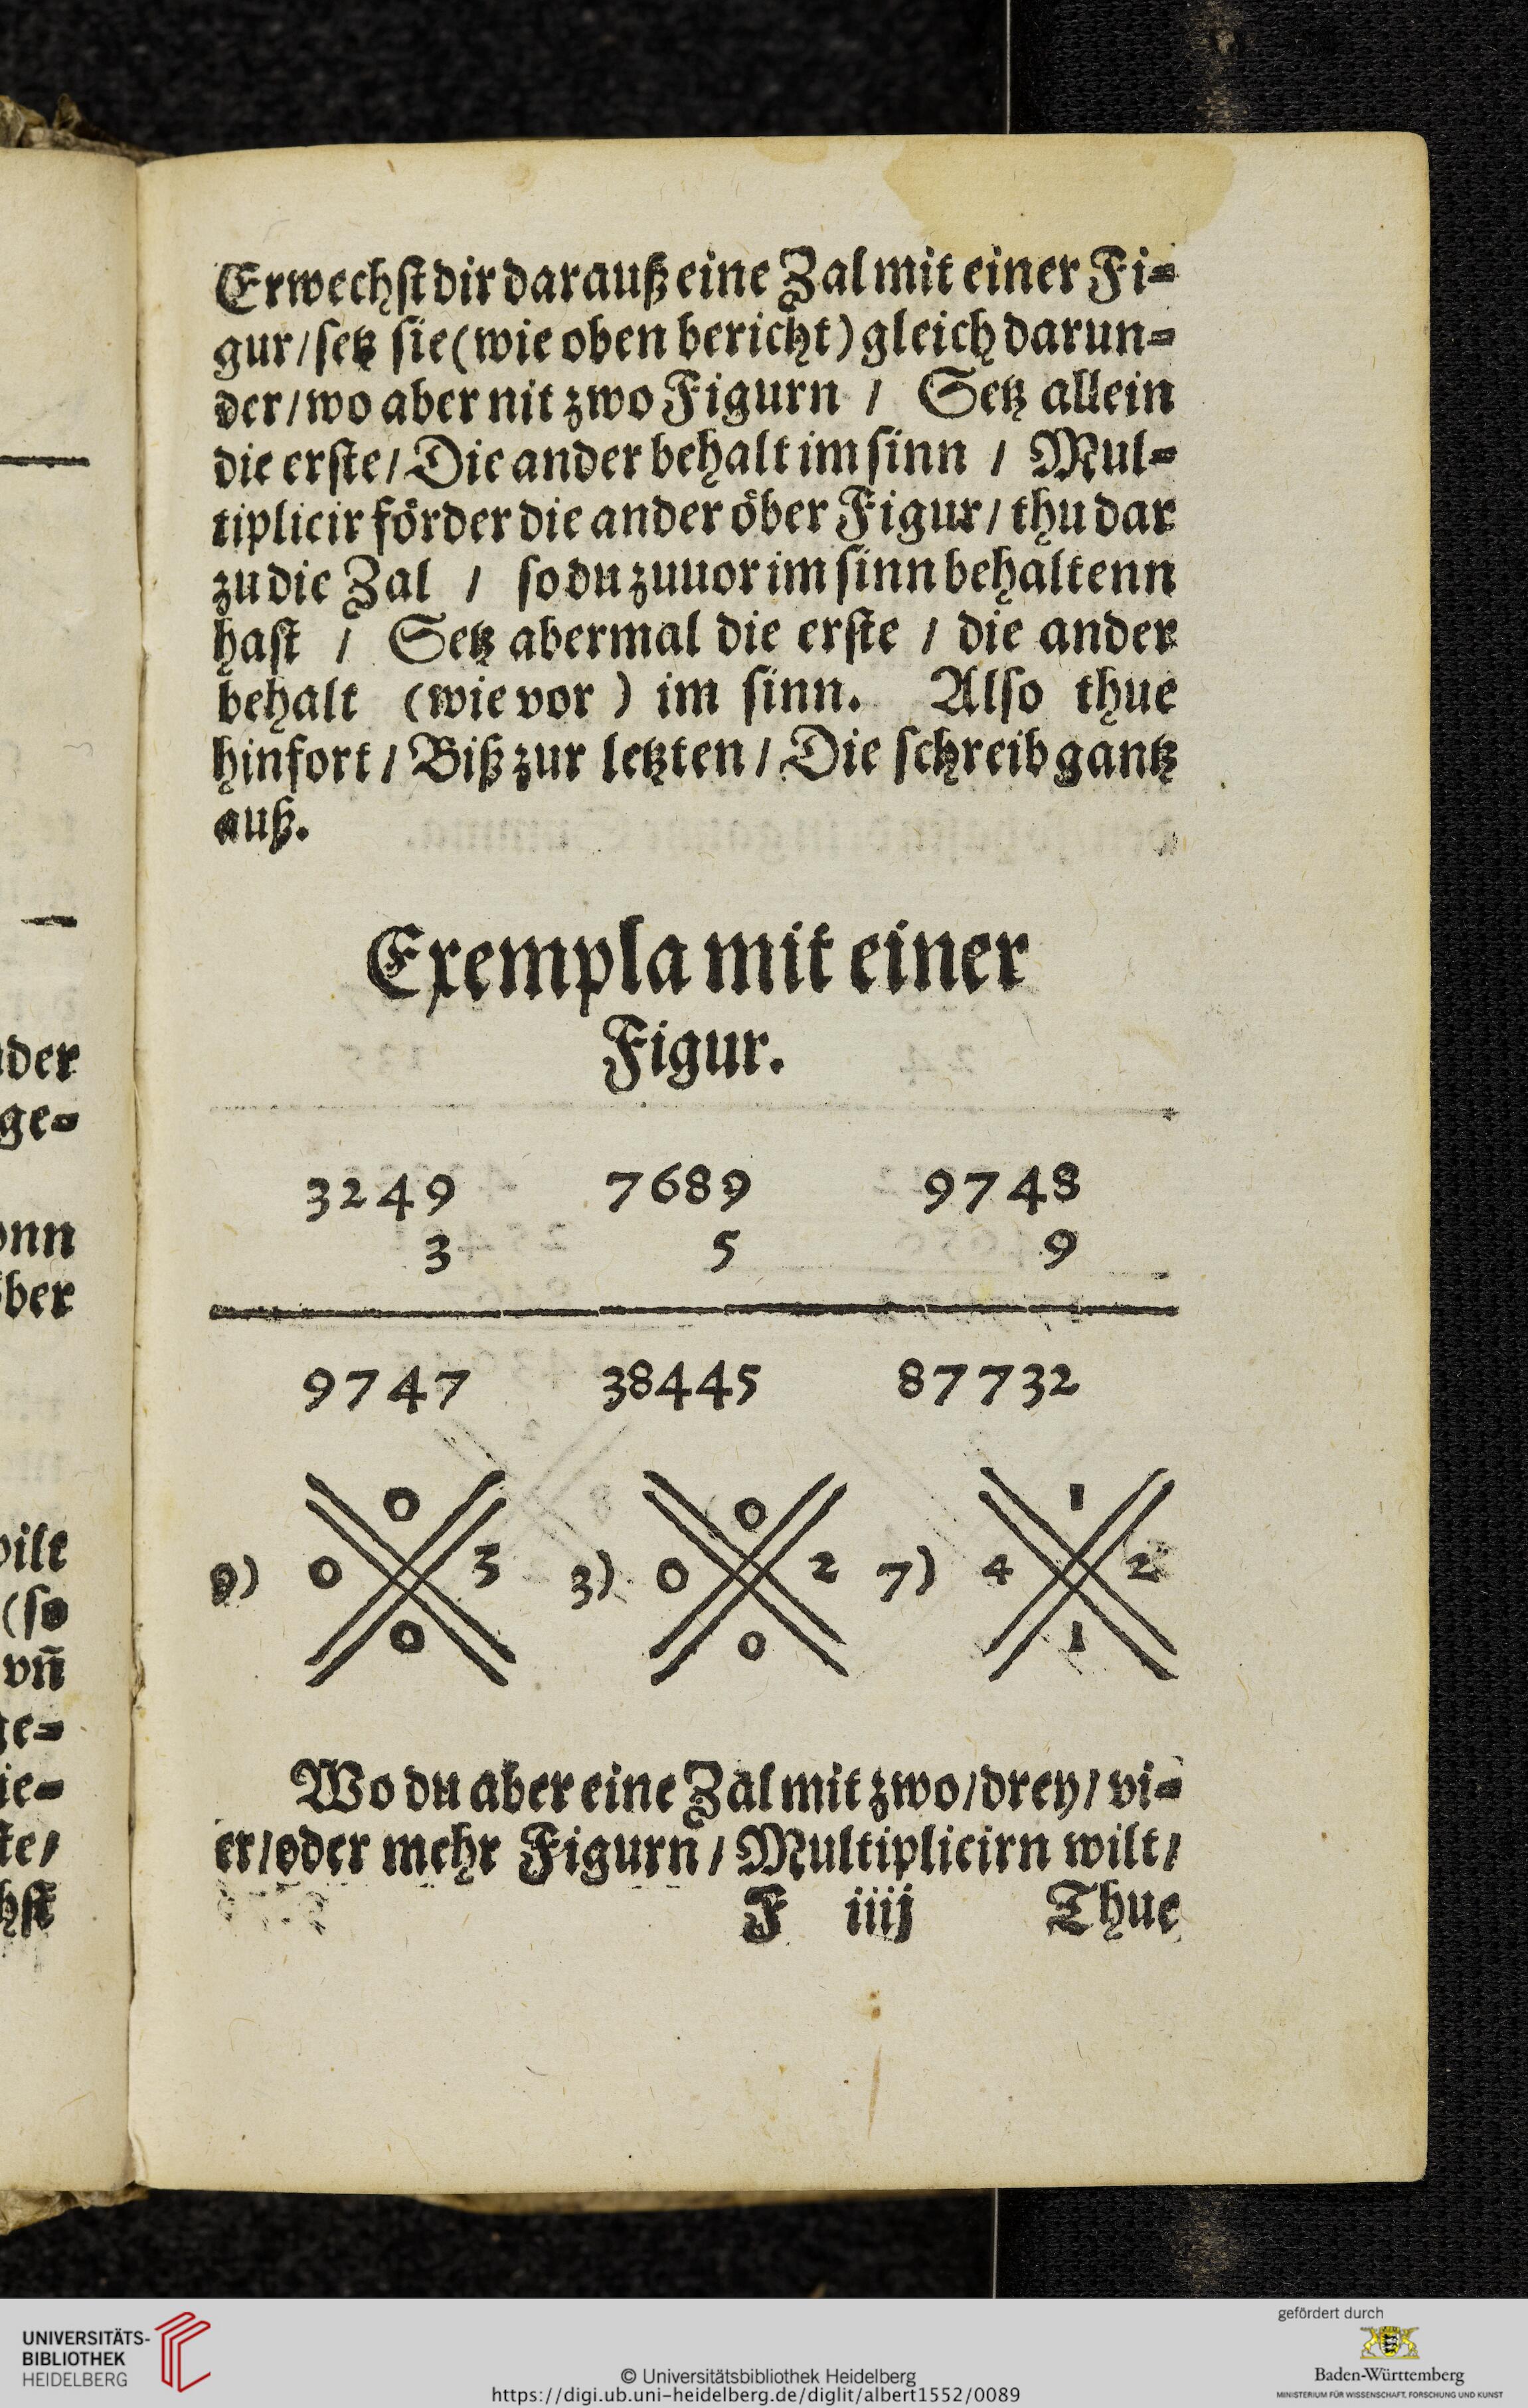 Erwechst dir darauß eine Zal mit einer Fi=
gur / setz sie (wie oben bericht) gleich darun=
der / wo aber nit zwo Figurn / Setz allein
die erste / Die ander behalt im sinn / Mul=
tiplicir förder die ander öber Figur / thu dar
zu die Zal / so du zuuor im sinn behaltenn
hast / Setz abermal die erste / die ander
behalt (wie vor) im sinn. Also thue
hinfort / Biß zur letzten / Die schreib gantz
auß.
Exempla mit einer
Figur.
3249 7689 9748
3 5 9
9747 38445 87732
0 0 1
9) 0 3 3) 0 2 7) 4 2
0 0 1
Wo du aber eine Zal mit zwo / drey / vi=
er / oder mehr Figurn / Multiplicirn wilt /
F iiij Thue
der
ge=
onn
ber
wilt
(so
vñ
ge=
ie=
te /
hst
UNIVERSITÄTS-
BIBLIOTHEK
HEIDELBERG
© Universitätsbibliothek Heidelberg
https://digi.ub.uni-heidelberg.de/diglit/albert1552/0089
gefördert durch
Baden-Württemberg
MINISTERIUM FÜR WISSENSCHAFT, FORSCHUNG UND KUNST